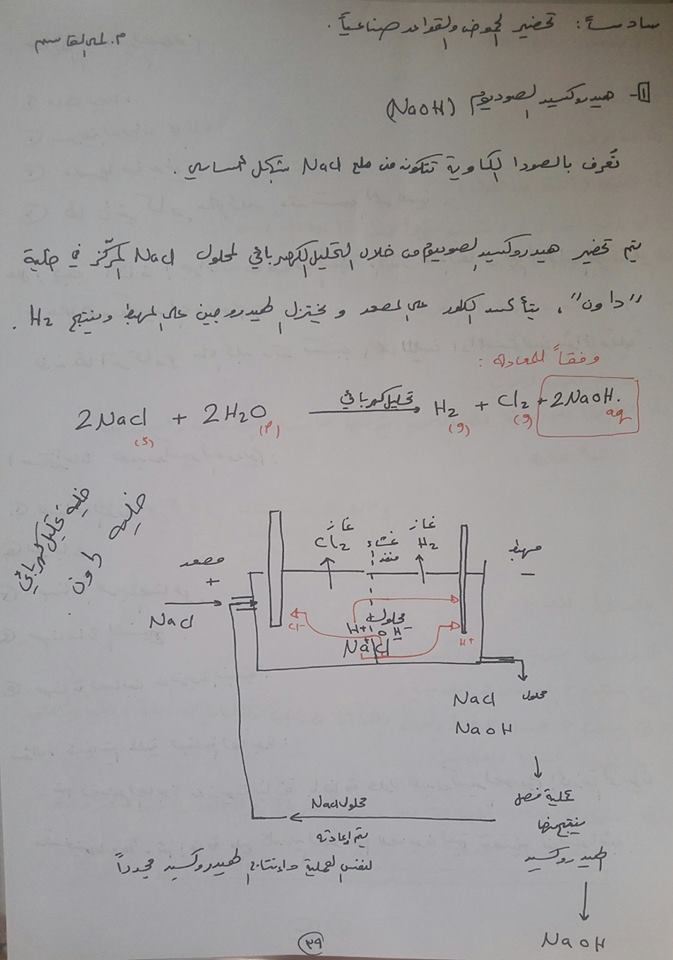 سادساً: تحضير الحموض والقواعد صناعياً.
م. لمى القاسم
1- هيدروكسيد الصوديوم (NaOH)
تُعرف بالصودا الكاوية تتكون من ملح NaCl بشكل أساسي.
يتم تحضير هيدروكسيد الصوديوم من خلال التحليل الكهربائي لمحلول NaCl المركّز في خلية
"داون"، يتأكسد الكلور على المصعد و يختزل الهيدروجين على المهبط وينتج H2.
وفقاً للمعادلة:
2NaCl + 2H2O تحليل كهربائي → H2 + Cl2 + 2NaOH.
(s) (l) (g) (g) aq
خلية تحليل كهربائي
خلية داون
مصعد
+
غاز
Cl2
غشاء
منفذ
غاز
H2
مهبط
-
NaCl
Cl-
محلول
H+ OH-
NaCl
H+
محلول NaCl
NaOH
عملية فصل
ينتج منها
الهيدروكسيد
NaOH
محلول NaCl
يتم إعادته
لنفس العملية وإنتاج الهيدروكسيد مجدداً
٣٩